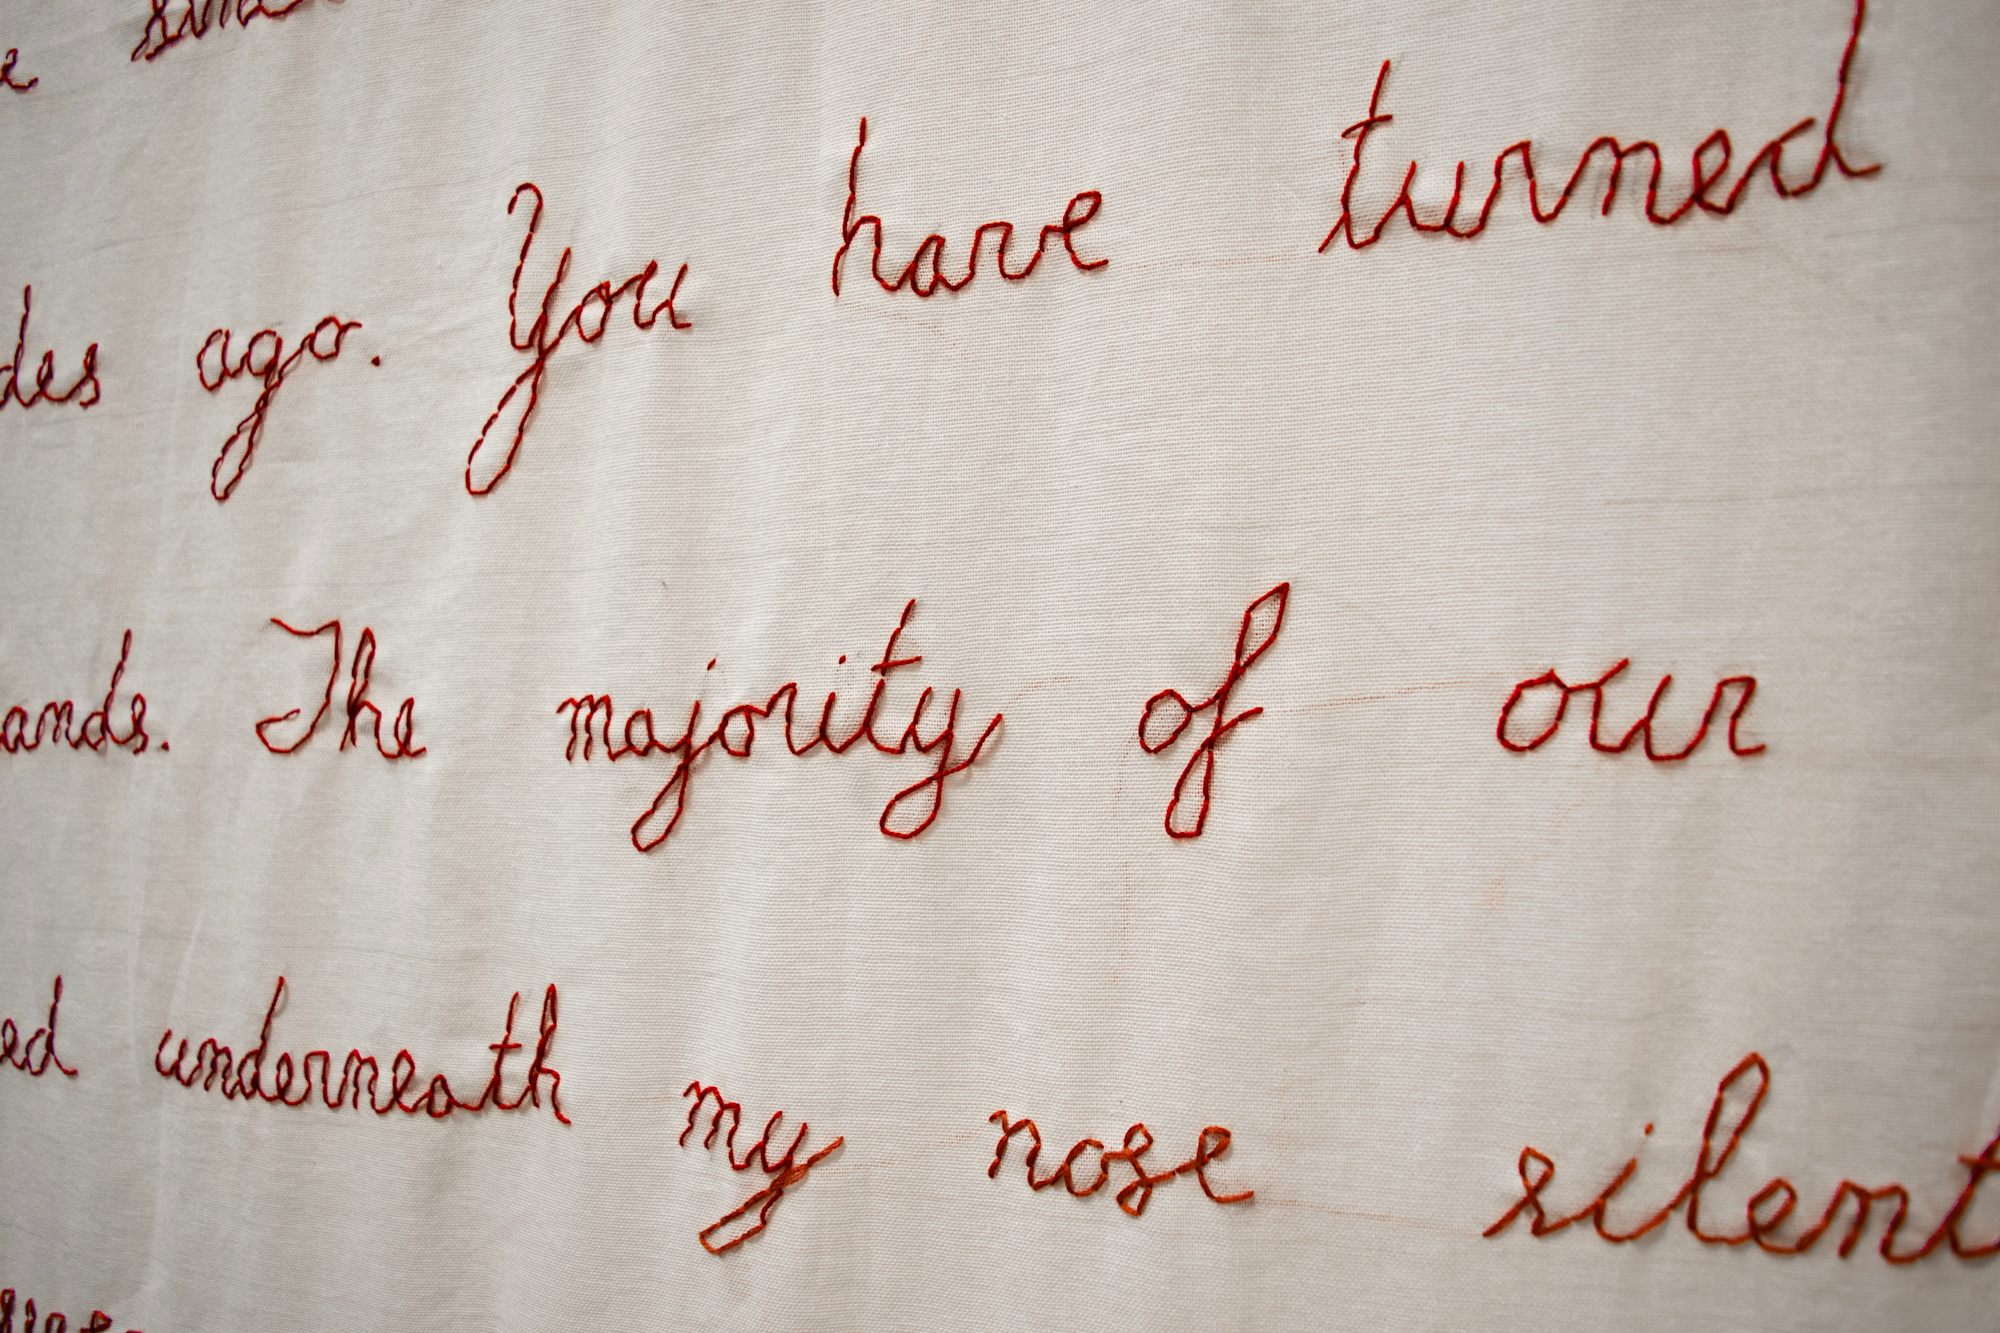 des ago. You have turned
ands. The majority of our
ed underneath my nose silent